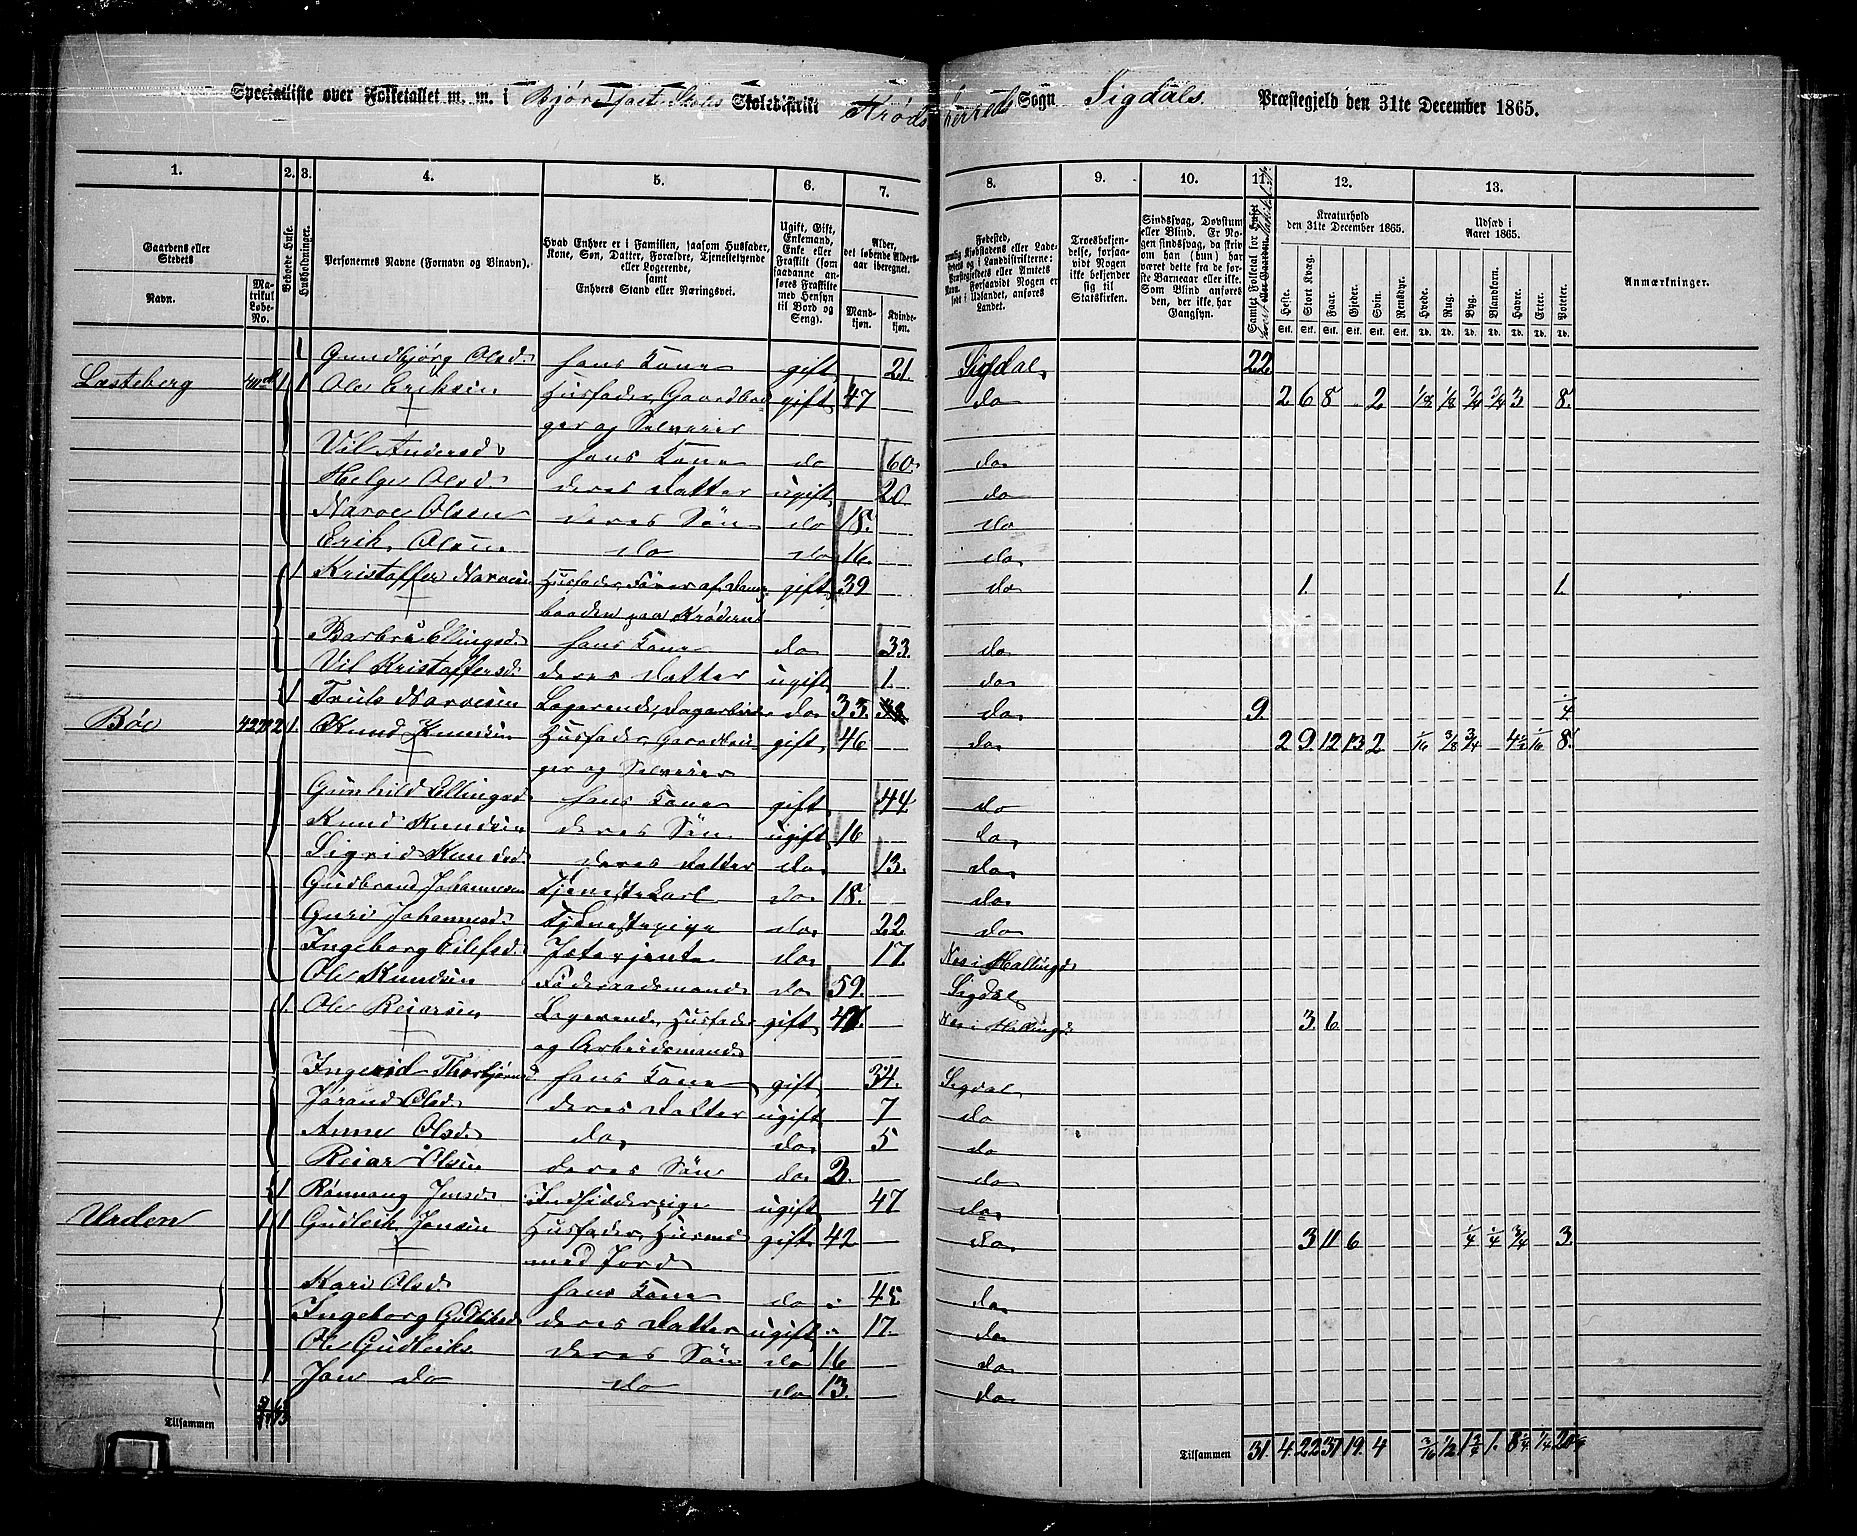 Specialliste over Folketallet m. m. i Skoledistrikt Sogn Sigdals Præstegjeld den 31te December 1865.
1. 2. 3. 4. 5. 6. 7. 8. 9. 10. 11. 12. 13.
Gaardens eller Stedets
Navn.
Matrikul Løbe-No.
Beboede Huse.
Husholdninger.
Personernes Navne (Fornavn og Tilnavn).
Hvad Enhver er i Familien, saasom Husfader, Kone, Søn, Datter, Forældre, Tjenestetyende eller Logerende, samt Enhvers Stand eller Næringsvei.
Ugift, Gift, Enkemand, Enke eller Fraskilt
Alder, det løbende Alders-aar iberegnet.
Mand-kjøn. Kvinde-kjøn.
Fødested,
Troesbekjendelse, forsaavidt Nogen ikke bekjender sig til Statskirken.
Sindssvag, Døvstum eller Blind.
Kreaturhold den 31te December 1865.
Udsæd i Aaret 1865.
Heste. Stort Kvæg. Faar. Gjeder. Svin. Rensdyr. Hvede. Rug. Byg. Blandkorn. Havre. Erter. Poteter.
Anmærkninger.
1 Gundbjørg Olsd. hans Kone gift 21. Sigdal. 22
Lasteberg 1 1 Ole Eriksen Husfader, Gaardbru gift 47 do 2 6 8 2 1/8 1/8 3/4 3/4 3 8.
ger og Selveier
Vil Andersd. hans Kone do 60. do
Helge Olsd. deres Datter ugift 20 do
Narve Olsen deres Søn do 18. do
Erik Olsen do do 16. do
1 Kristoffer Narvesen Husfader, Fører af Damp gift 39 do 1. 1.
baaden paa Krøderen
Barbro Ellingsd. hans Kone do 33. do
Vil Kristoffersd. deres Datter ugift 1. do
1 Truls Narvesen Logerende, Dagarbeider do 33. do 9. 1/4
Bøe 2 1. Knud Knudsen Husfader, Gaardbru gift 46 do 2 9 12 13 2 1/16 3/8 3/4 4 1/2 1/16 8.
ger og Selveier
Gunhild Ellingsd. hans Kone gift 44 do
Knud Knudsen deres Søn ugift 16 do
Sigrid Knudsd. deres Datter do 13. do
Gudbrand Johannesen Tjenestekarl do 18. do
Guri Johannesd. Tjenestepige do 22 do
Ingeborg Eilefsd. Jeterjente do 17. Nes i Hallingd.
Ole Knudsen Føderaadsmand do 59. Sigdal
1. Ole Reiarsen Logerende, Husfader gift Nes i Hallingd. 3 6
og Arbeidsmand
Ingerid Thorbjørnsd. hans Kone gift 34. Sigdal
Jørand Olsd. deres Datter ugift 7 do
Anne Olsd. do do 5 do
Reiar Olsen deres Søn do do
1 Rønnaug Jensd. Indsidderpige ugift 47 do
Urden 1 1 Gudleik Jonsen Husfader, Husmd gift 42 do 3 11 6 1/4 1/4 3/4 3.
med Jord
Kari Olsd. hans Kone do 45. do
Ingeborg deres Datter ugift 17. do
Ole Gudleiks. deres Søn do 16 do
Jon do do do 13. do
Tilsammen
Tilsammen 31. 4. 22 37 19. 4 3/16 1/2 1 3/4 1.